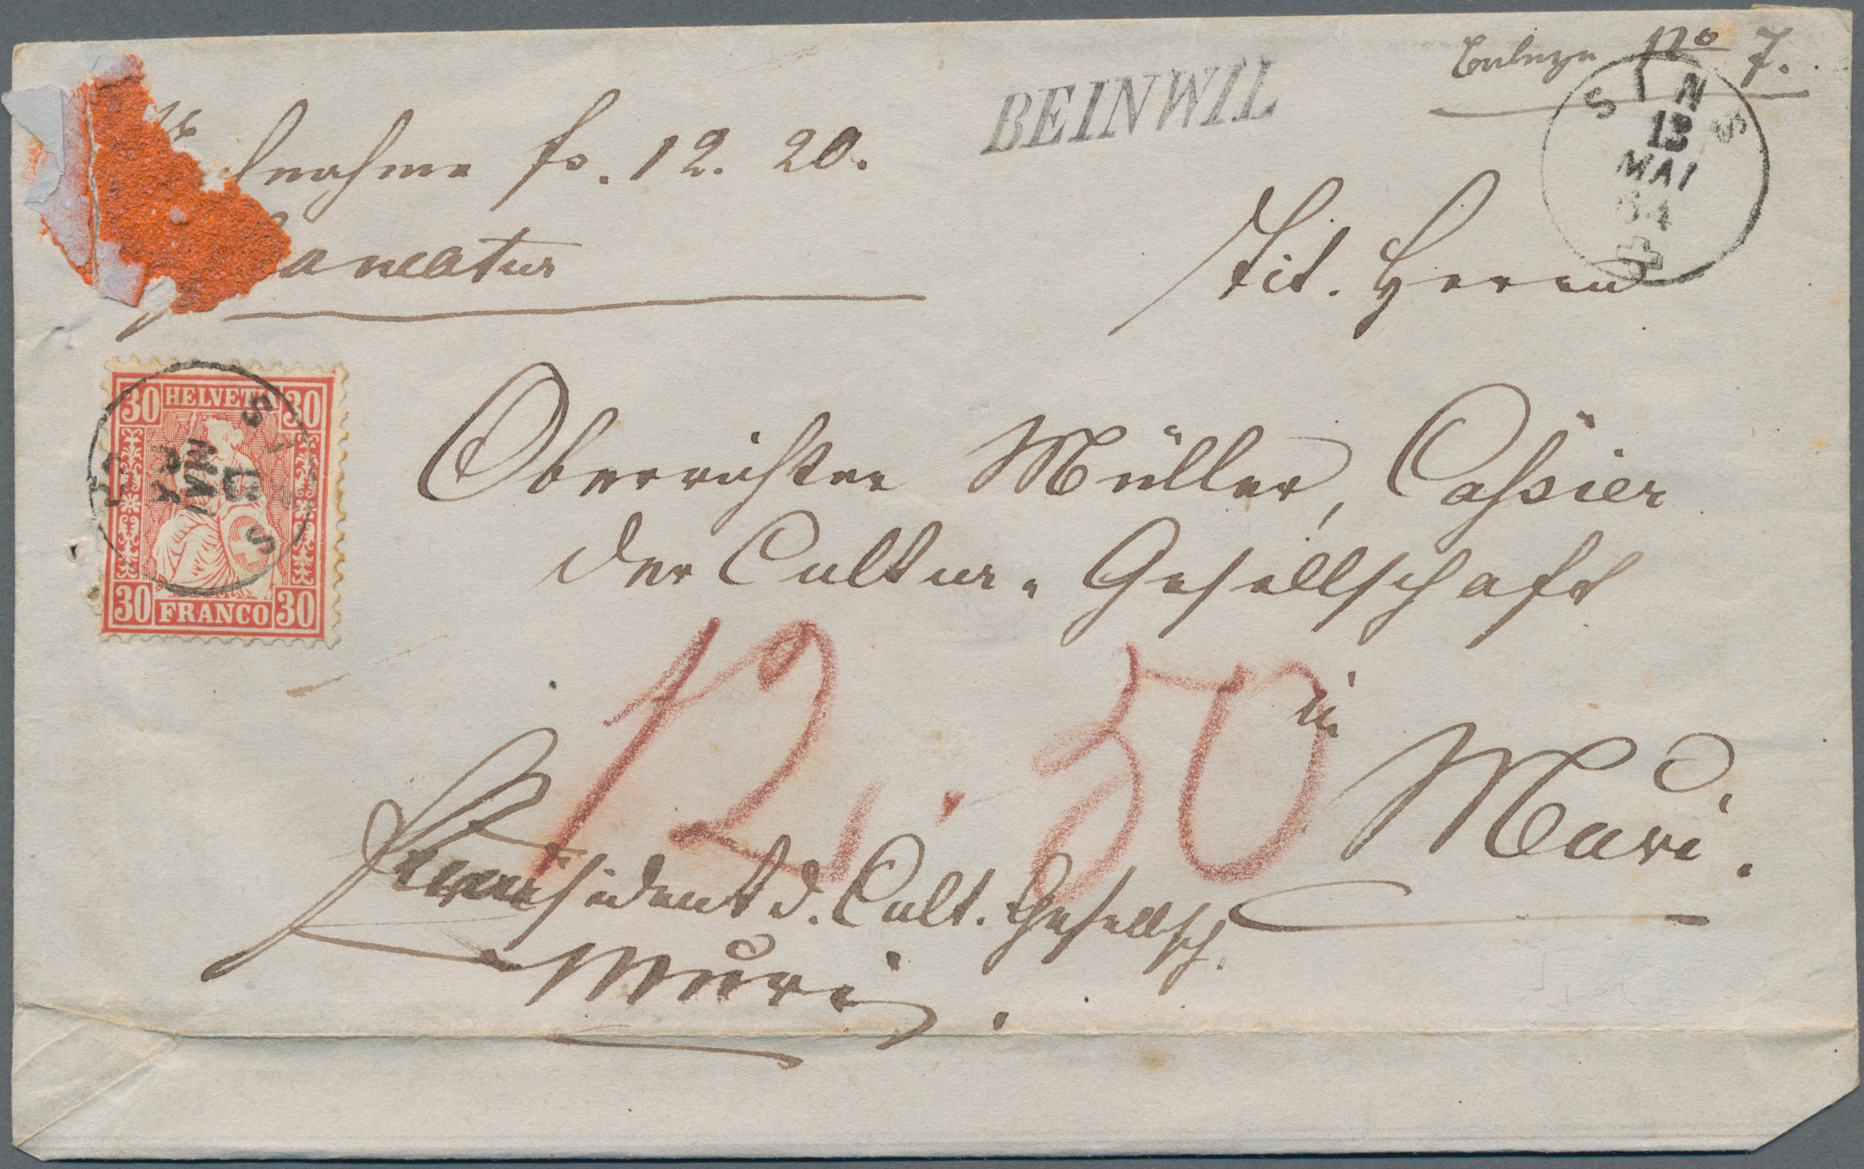 No 7.
BEINWIL
SINS
13
MAI
64
fr. 12. 20.
Tit. Herrn
30 HELVETIA 30
SINS
13
MAI
64
30 FRANCO 30
Oberrichter Müller, Cassier
der Cultur-Gesellschaft
12. 50
in
Muri.
Präsident d. Cult. Gesellsch.
Muri.